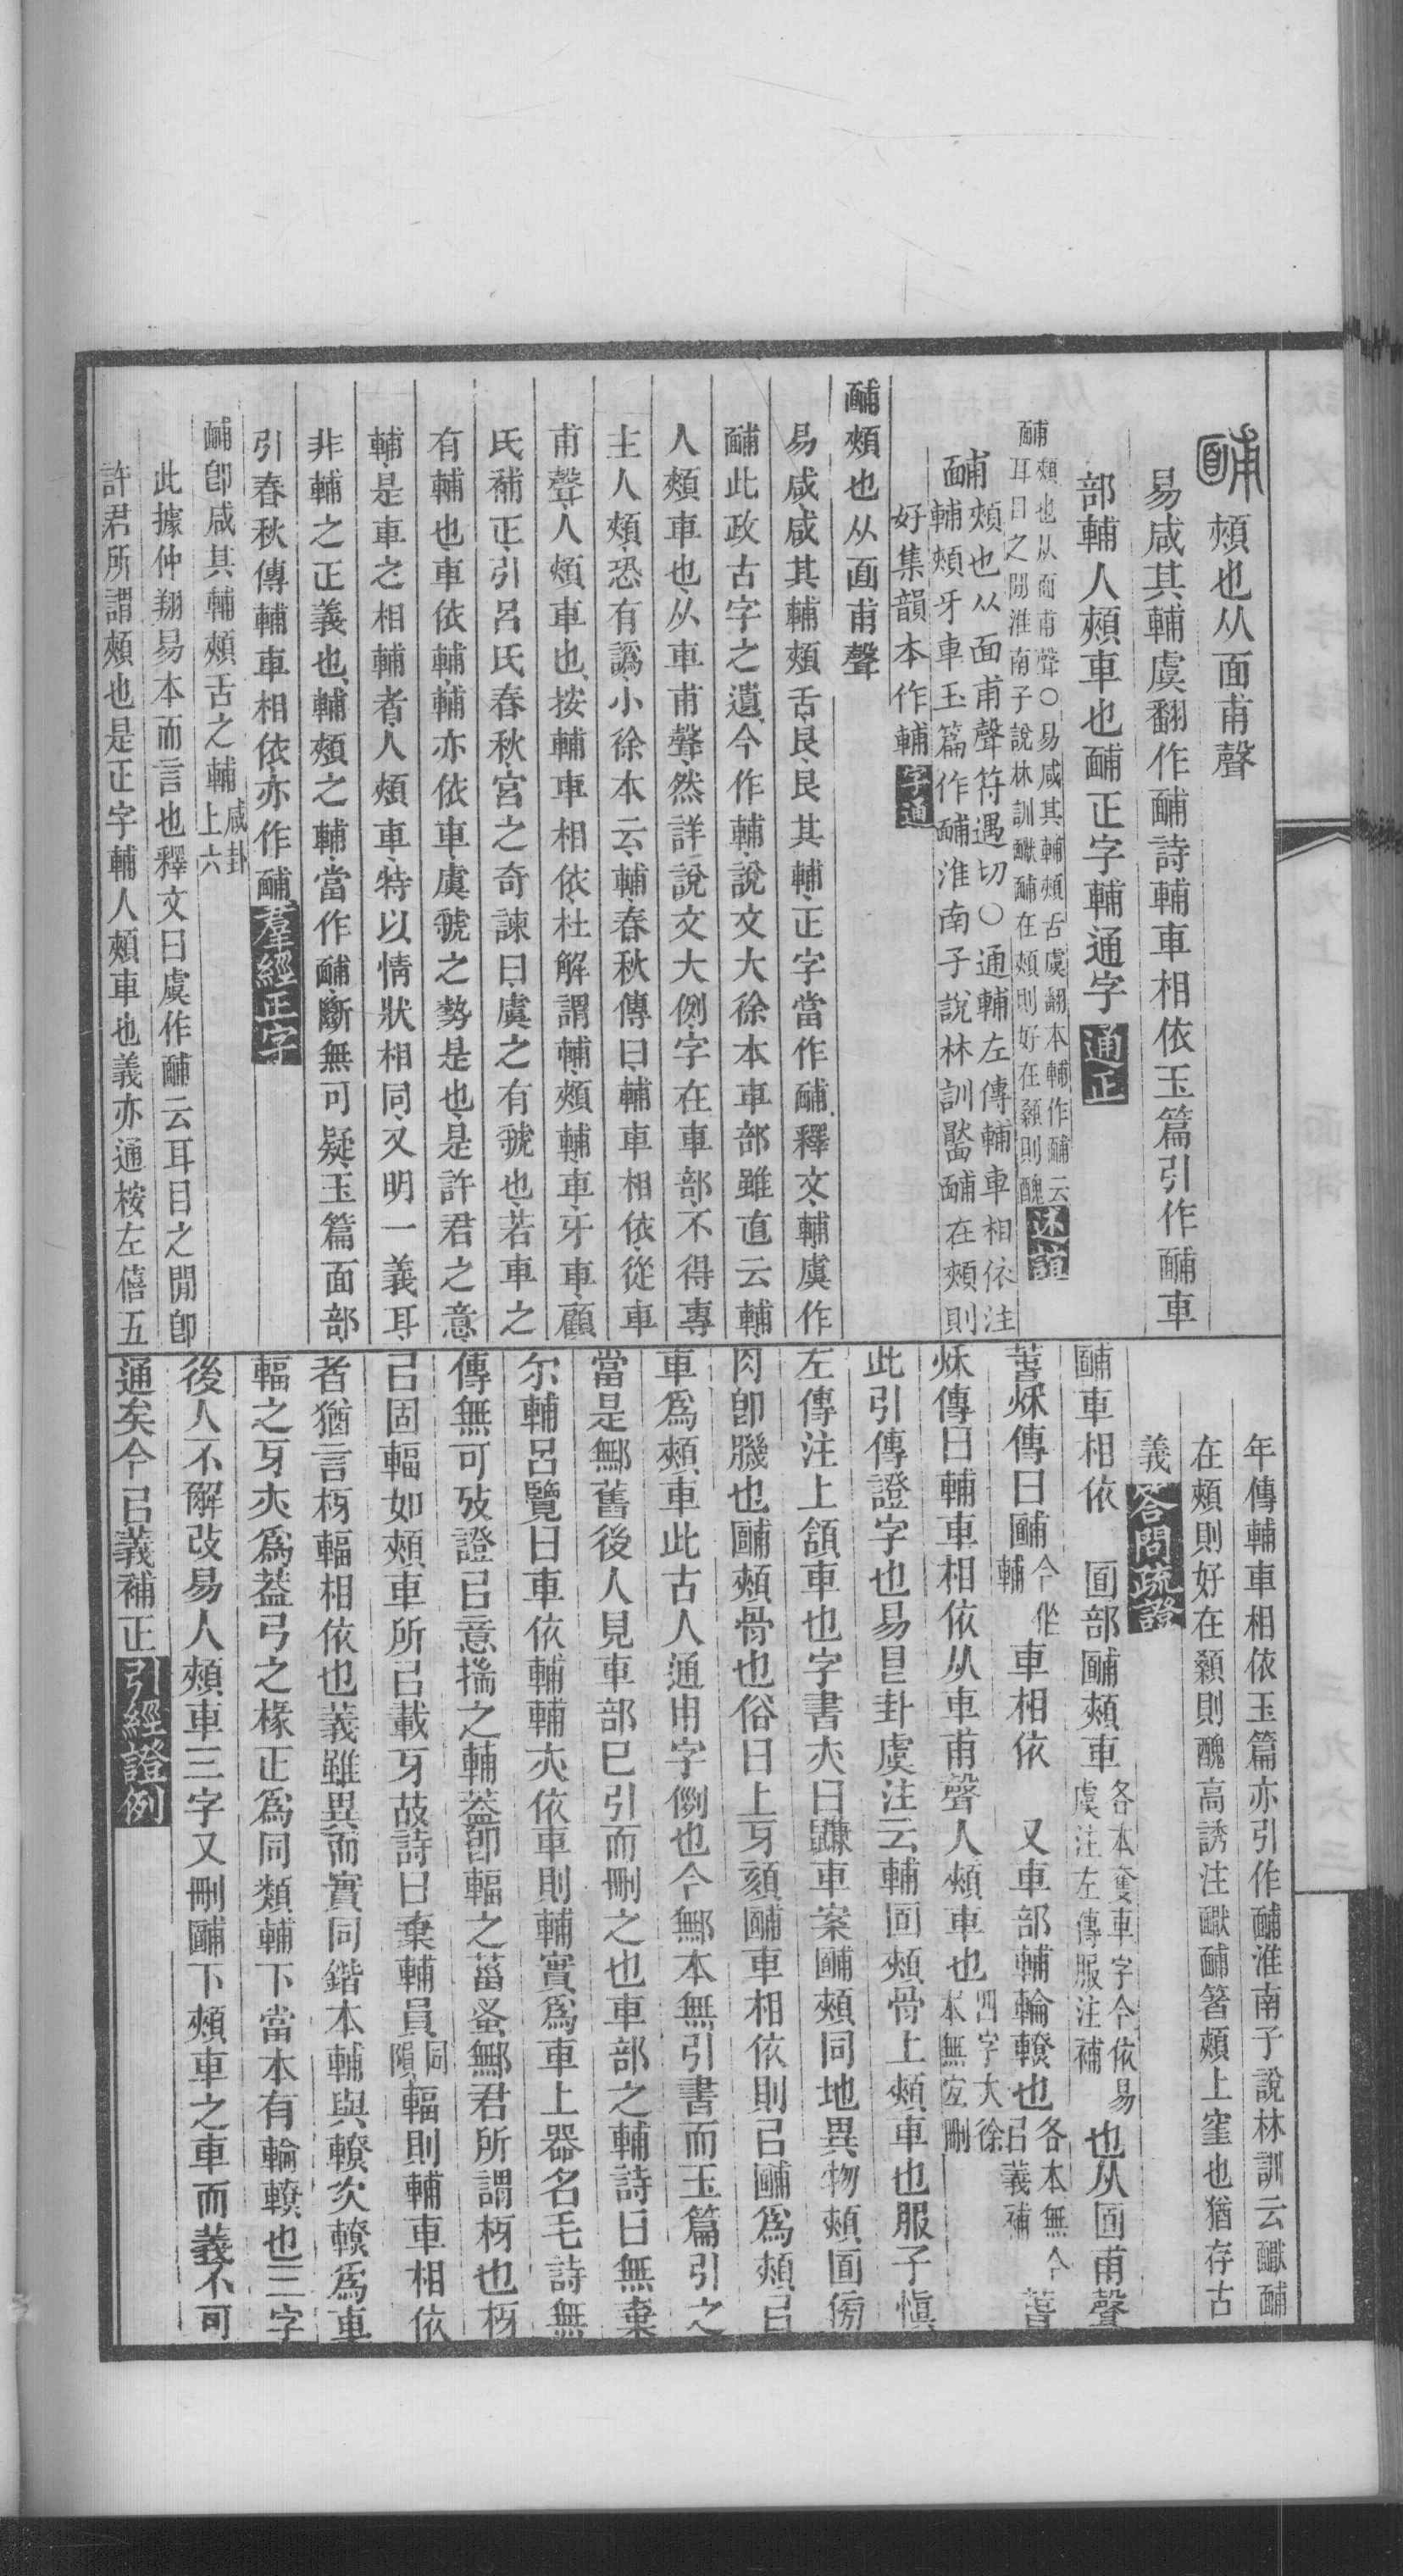 䩉頰也从面甫聲
易咸其輔虞翻作䩉詩輔車相依玉篇引作䩉車
部輔人頰車也䩉正字輔通字通正
䩉頰也从面甫聲〇易咸其輔頰舌虞翻本輔作䩉云
耳目之閒淮南子說林訓䩉在頰則好在顙則醜述誼
䩉頰也从面甫聲符遇切〇通輔左傳輔車相依注
輔頰牙車玉篇作䩉淮南子說林訓靨䩉在頰則
好集韻本作輔字通
䩉頰也从面甫聲
易咸咸其輔頰舌艮艮其輔正字當作䩉釋文輔虞作
䩉此政古字之遺今作輔說文大徐本車部雖直云輔
人頰車也从車甫聲然詳說文大例字在車部不得專
主人頰恐有譌小徐本云輔春秋傳曰輔車相依從車
甫聲人頰車也按輔車相依杜解謂輔頰輔車牙車顧
氏補正引呂氏春秋宮之奇諫曰虞之有虢也若車之
有輔也車依輔輔亦依車虞虢之勢是也是許君之意
輔是車之相輔者人頰車特以情狀相同又明一義耳
非輔之正義也輔頰之輔當作䩉斷無可疑玉篇面部
引春秋傳輔車相依亦作䩉羣經正字
䩉卽咸其輔頰舌之輔咸卦上六
此據仲翔易本而言也釋文曰虞作䩉云耳目之閒卽
許君所謂頰也是正字輔人頰車也義亦通桉左僖五
年傳輔車相依玉篇亦引作䩉淮南子說林訓云䩉
在頰則好在顙則醜高誘注䩉箸頰上窐也猶存古
義答問疏證
䩉車相依 面部䩉頰車各本奪車字今依易虞注左傳服注補也从面甫聲
萅秌傳曰䩉今作輔車相依 又車部輔輪轑也各本無今㠯義補萅
秌傳曰輔車相依从車甫聲人頰車也四字大徐本無宐刪
此引傳證字也易㠯卦虞注云輔面頰骨上頰車也服子愼
左傳注上頷車也字書亦曰鼸車案䩉頰同地異物頰面傍
肉卽䑏也䩉頰骨也俗曰上牙頦䩉車相依則㠯䩉爲頰㠯
車爲頰車此古人通用字例也今鄦本無引書而玉篇引之
當是鄦舊後人見車部已引而刪之也車部之輔詩曰無棄
尔輔呂覽曰車依輔輔亦依車則輔實爲車上器名毛詩無
傳無可攷證㠯意揣之輔葢卽輻之菑蚤鄦君所謂枒也枒
㠯固輻如頰車所㠯載牙故詩曰棄輔員同隕輻則輔車相依
者猶言枒輻相依也義雖異而實同鍇本輔與轑次轑爲車
輻之牙亦爲葢弓之椽正爲同類輔下當本有輪轑也三字
後人不解改易人頰車三字又刪䩉下頰車之車而義不可
通矣今㠯義補正引經證例